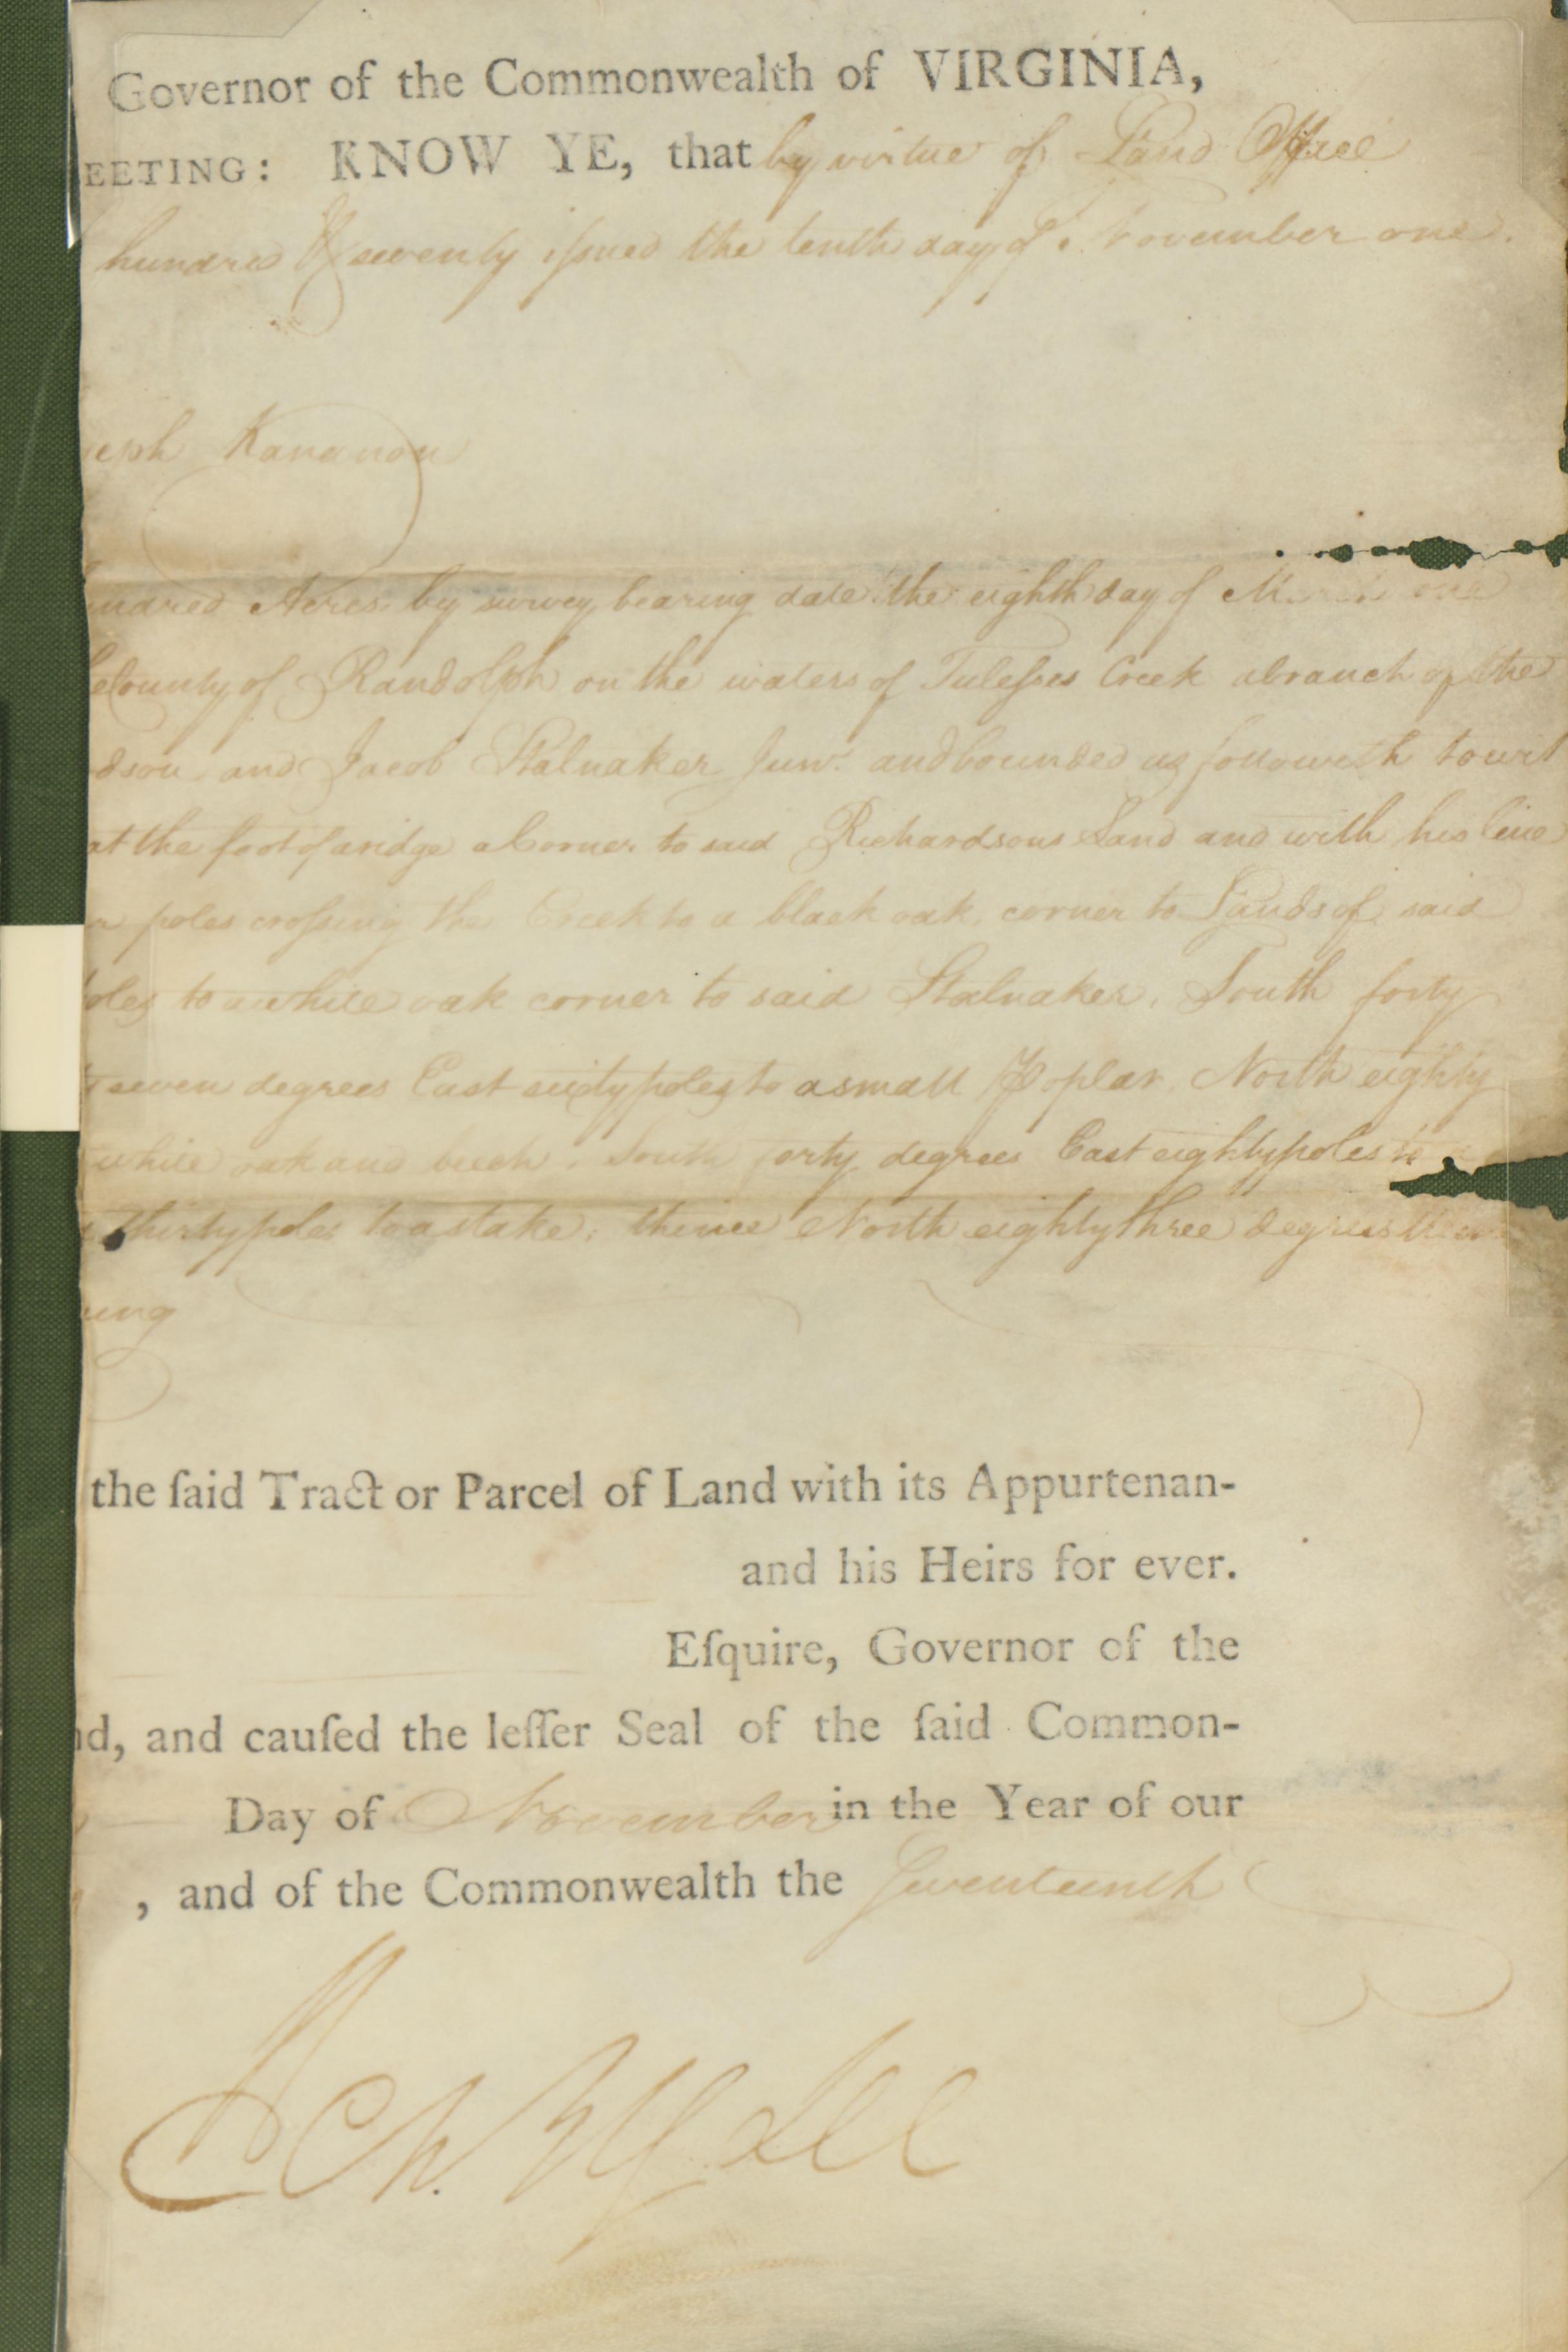 Governor of the Commonwealth of VIRGINIA,
EETING: KNOW YE, that by virtue of Land Office
hundred & seventy iſsued the tenth day of November one
eph Kananou
undred Acres by survey bearing date the eighth day of one
County of Randolph on the waters of Creek abranch of the
dson and Jacob Stalnaker Junr. and bounded as followeth towit
at the foot of a ridge a Corner to said Richardsons Land and with his line
poles croſsing the Creek to a black oak, corner to Lands of said
oles to a white oak corner to said Stalnaker, South forty
seven degrees East sixty poles to a small Poplar, North eighty
white oak and beech, South forty degrees East eighty poles to
thirty poles to a stake, thence North eighty three degrees
ing
the ſaid Tract or Parcel of Land with its Appurtenan-
and his Heirs for ever.
Eſquire, Governor of the
nd, and cauſed the leſſer Seal of the ſaid Common-
Day of November in the Year of our
, and of the Commonwealth the Seventeenth
Henry Lee